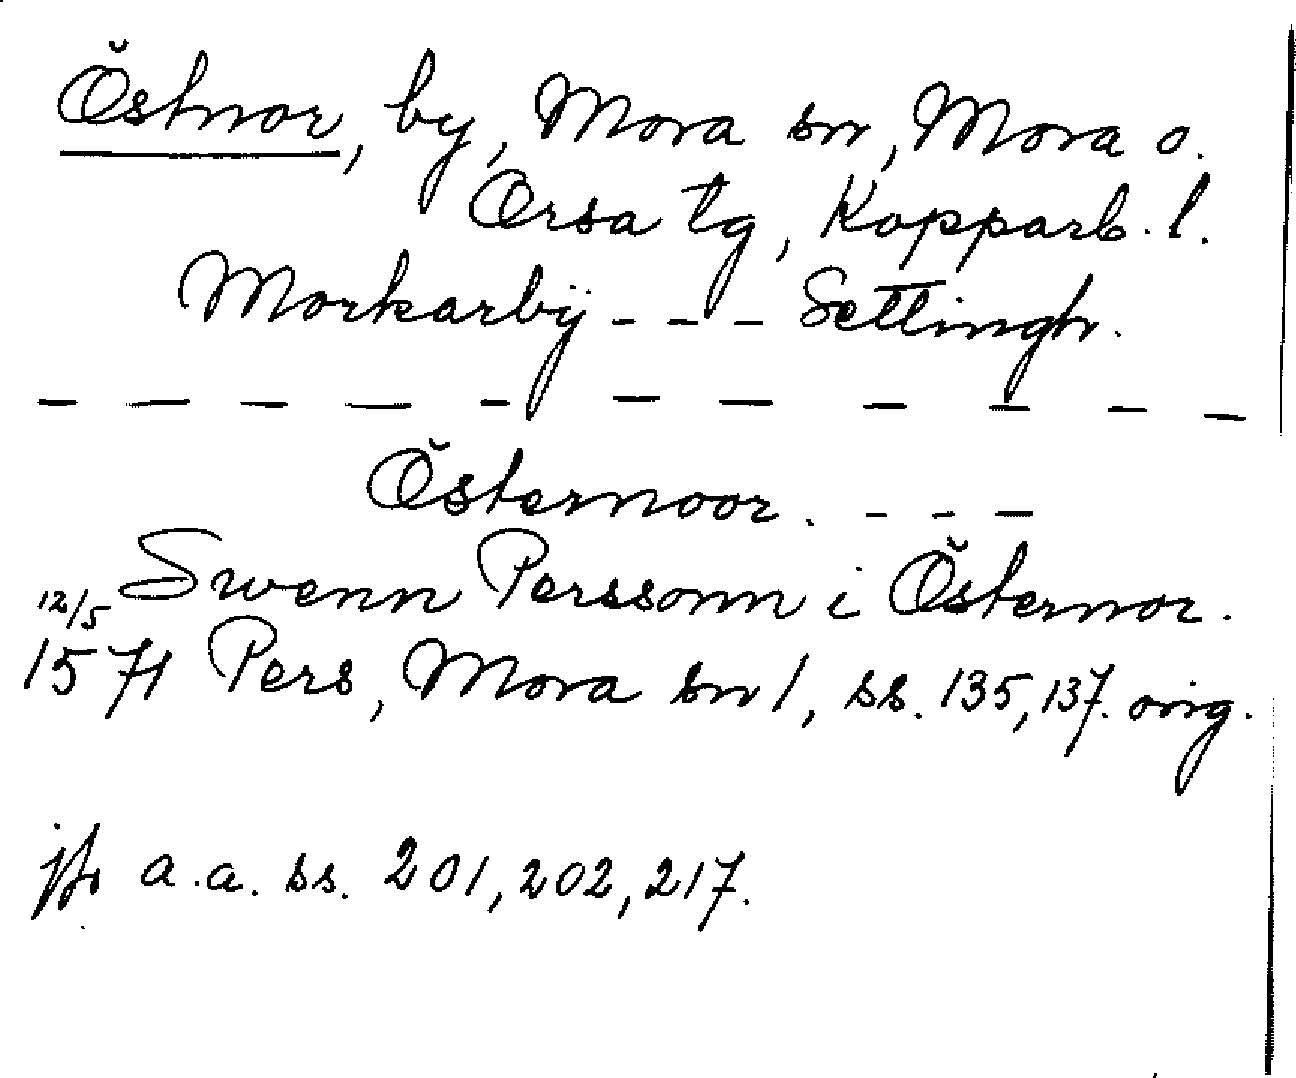 Östnor, by, Mora sn, Mora o.
Orsa tg, Kopparb. l.
Morkarbÿ - - - Settingh.
— — — — — — — — — — —
Östernoor. - - -
Swenn Perssonn i Östernor.
12/5
1571 Pers, Mora sn 1, ss. 135, 137. orig.
jfr a.a. ss. 201, 202, 217.